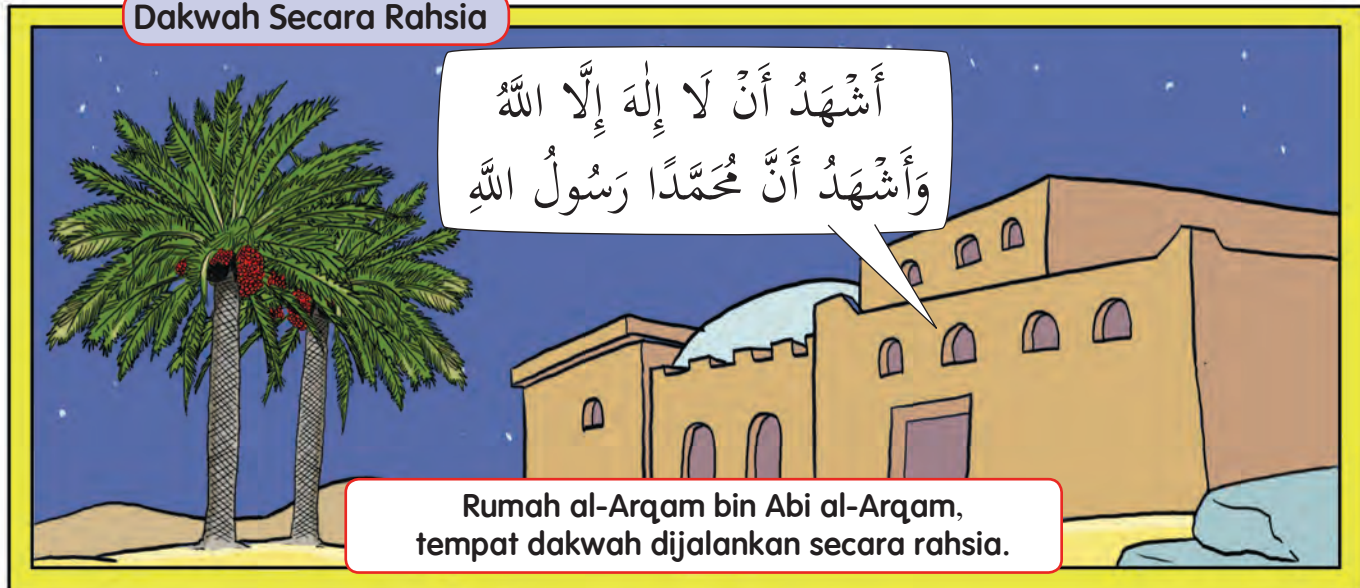 Dakwah Secara Rahsia
أَشْهَدُ أَنْ لَا إِلٰهَ إِلَّا اللَّهُ
وَأَشْهَدُ أَنَّ مُحَمَّدًا رَسُولُ اللَّهِ
Rumah al-Arqam bin Abi al-Arqam,
tempat dakwah dijalankan secara rahsia.